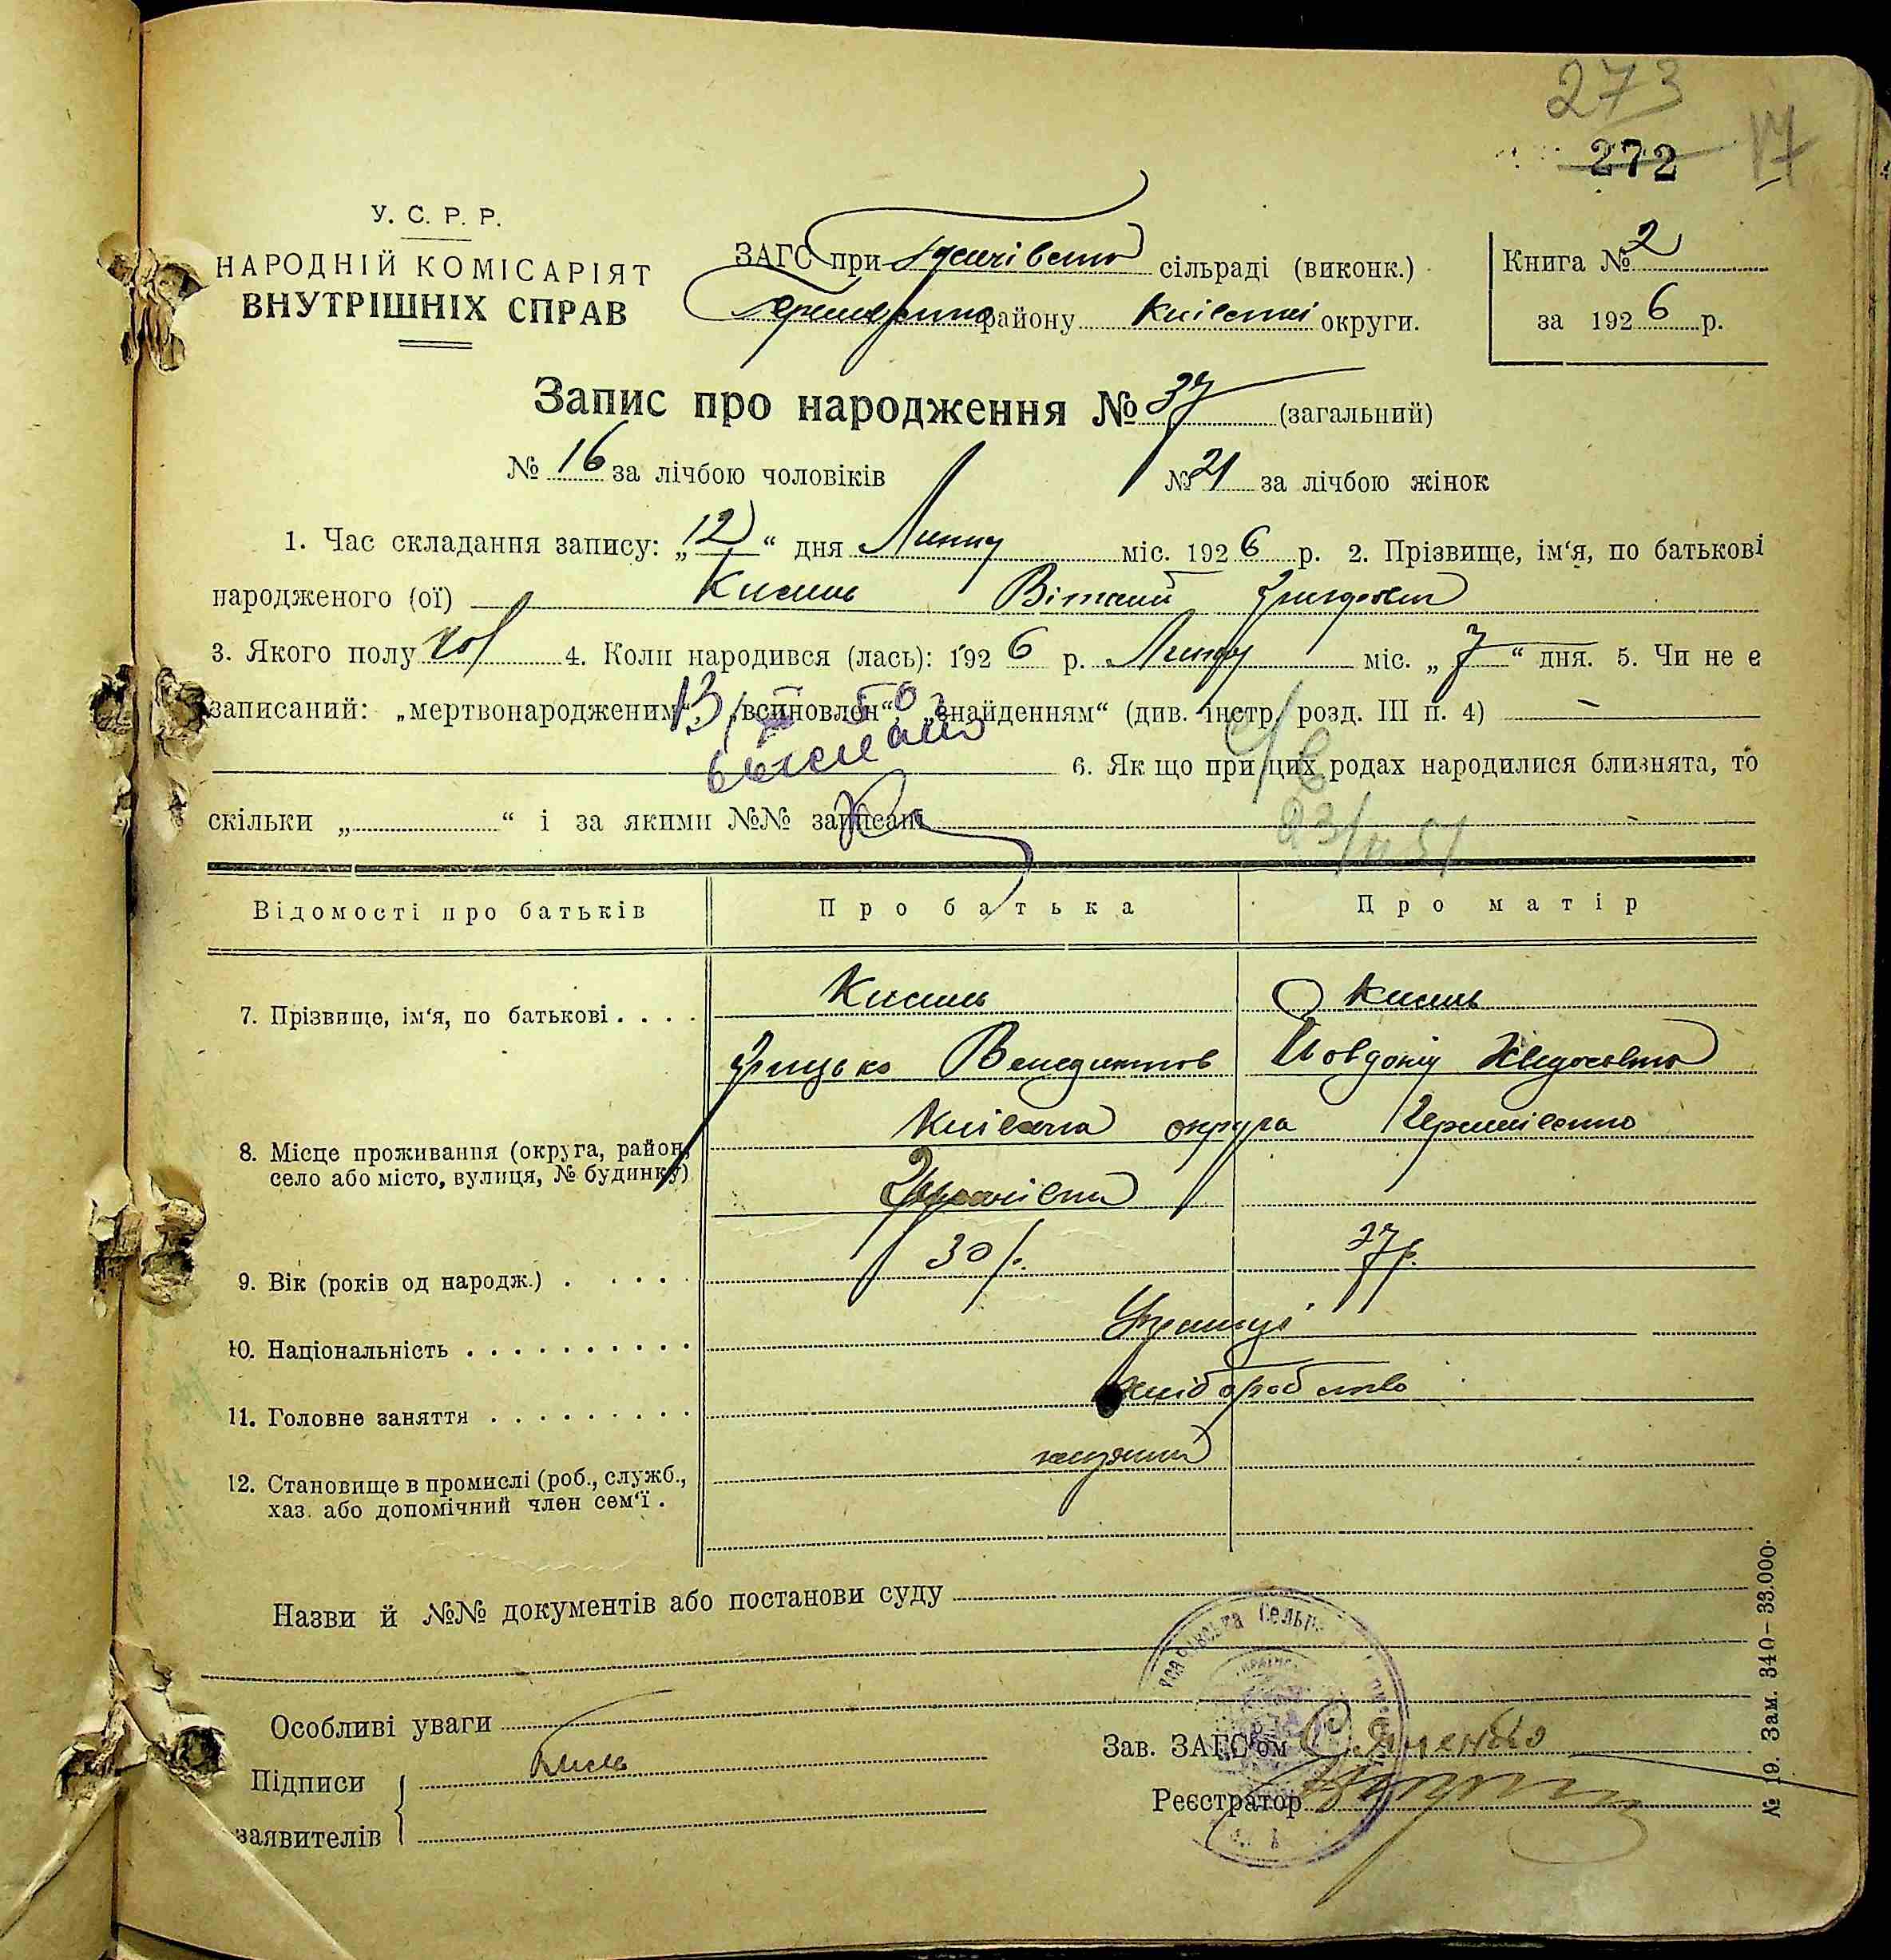 273
272
17
У. С. Р. Р.
НАРОДНІЙ КОМІСАРІЯТ
ВНУТРІШНІХ СПРАВ
ЗАГС при сільраді (виконк.)
району Київської округи.
Книга № 2
за 1926 р.
Запис про народження № 37 (загальний)
№ 16 за лічбою чоловіків № 21 за лічбою жінок
1. Час складання запису: „12“ дня Липця міс. 1926 р. 2. Прізвище, ім‘я, по батькові
народженого (ої) Кисиль Віталий
3. Якого полу чол 4. Коли народився (лась): 1926 р. Липця міс. „7“ дня. 5. Чи не є
записаний: „мертвонародженим“, „всиновлен“, „знайденням“ (див. інстр. розд. III п. 4) —
6. Як що при цих родах народилися близнята, то
скільки „ “ і за якими №№ записані
23/II 51
Відомості про батьків Про батька Про матір
7. Прізвище, ім‘я, по батькові . . . . Кисиль Кисиль
Грицько Венедиктов Йовдоха
8. Місце проживання (округа, район, село або місто, вулиця, № будинку) Київська округа
9. Вік (років од народж.) . . . . . 30 р. 27 р.
10. Національність . . . . . . . . . . Українці
11. Головне заняття . . . . . . . . . хліборобство
12. Становище в промислі (роб., служб.,
хаз. або допомічний член сем‘ї .
Назви й №№ документів або постанови суду
Особливі уваги
Підписи
заявителів
Зав. ЗАГС‘ом
Реєстратор
№ 19. Зам. 340—33.000.